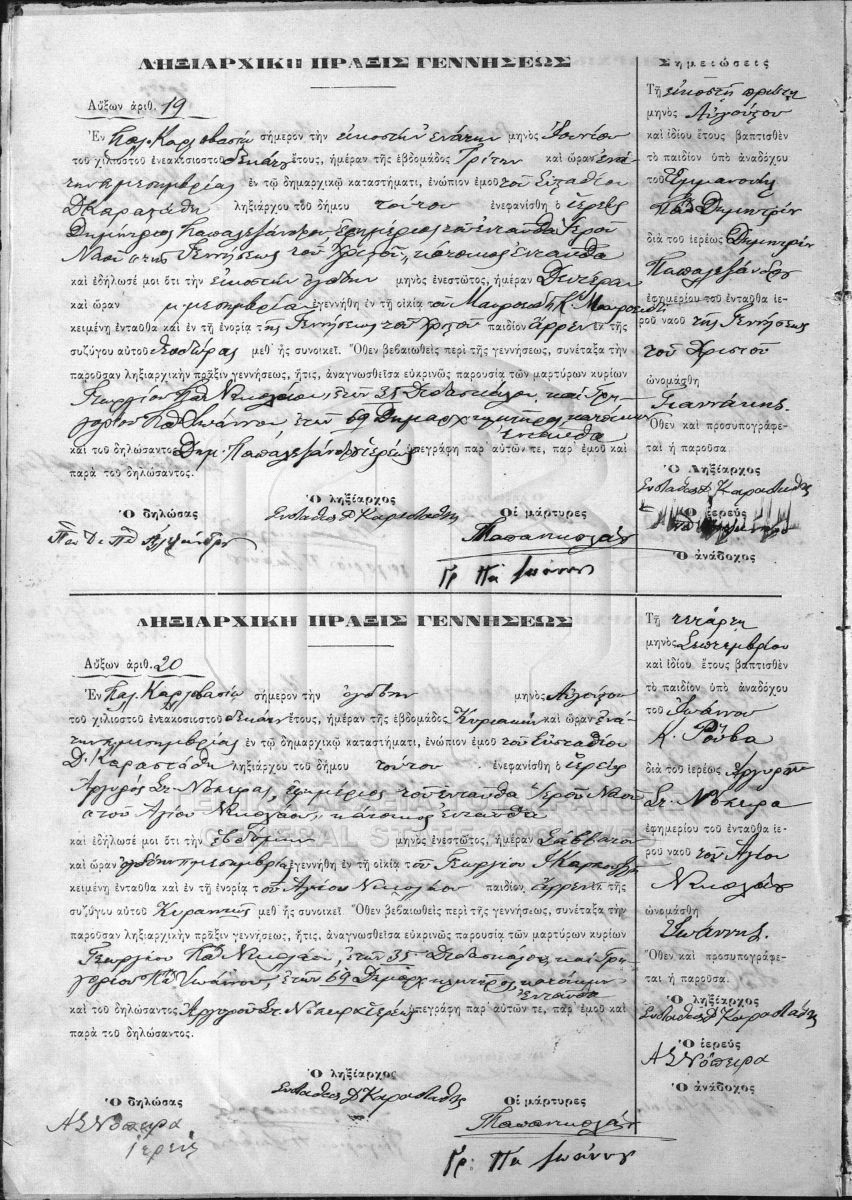 ΛΗΞΙΑΡΧΙΚΗ ΠΡΑΞΙΣ ΓΕΝΝΗΣΕΩΣ
Αὔξων ἀριθ. 19
Ἐν Παλ. Καρλοβασίῳ σήμερον τὴν εἰκοστὴν ἐνάτην μηνὸς Ἰουνίου
τοῦ χιλιοστοῦ ἐνεακοσιοστοῦ δεκάτου ἔτους, ἡμέραν τῆς ἑβδομάδος Τρίτην καὶ ὥραν ἐνά-
την π.μεσημβρίας ἐν τῷ δημαρχικῷ καταστήματι, ἐνώπιον ἐμοῦ τοῦ Εὐσταθίου
Δ Καραστάθη ληξιάρχου τοῦ δήμου τούτου ἐνεφανίσθη ὁ ἱερεὺς
Δημήτριος Παπαλεξάνδρου ἐφημέριος τοῦ ἐνταῦθα Ἱεροῦ
Ναοῦ τῆς Γεννήσεως τοῦ Χριστοῦ, κάτοικος ἐνταῦθα
καὶ ἐδήλωσέ μοι ὅτι τὴν εἰκοστὴν ὀγδόην μηνὸς ἐνεστῶτος, ἡμέραν Δευτέραν
καὶ ὥραν μ.μεσημβρίαν ἐγεννήθη ἐν τῇ οἰκίᾳ τοῦ
κειμένῃ ἐνταῦθα καὶ ἐν τῇ ἐνορίᾳ τῆς Γεννήσεως τοῦ Χριστοῦ παιδίον ἄρρεν ἐκ τῆς
συζύγου αὐτοῦ μεθ᾽ ἧς συνοικεῖ. Ὅθεν βεβαιωθεὶς περὶ τῆς γεννήσεως, συνέταξα τὴν
παροῦσαν ληξιαρχικὴν πρᾶξιν γεννήσεως, ἥτις, ἀναγνωσθεῖσα εὐκρινῶς παρουσίᾳ τῶν μαρτύρων κυρίων
Γεωργίου Πα Νικολάου, ἐτῶν 35 διδασκάλου, καὶ Γρη-
γορίου Πα Ἰωάννου ἐτῶν 69 Δημαρχ. κλητῆρος κατοίκων
ἐνταῦθα
καὶ τοῦ δηλώσαντος Δημ. Παπαλεξάνδρου ἱερέως ὑπεγράφη παρ᾽ αὐτῶν τε, παρ᾽ ἐμοῦ καὶ
παρὰ τοῦ δηλώσαντος.
Ὁ δηλώσας
Ὁ ληξίαρχος
Οἱ μάρτυρες
Ευσταθιος Δ Καραστάθης
Παπανικολάου
Γρ. Πα Ιωάννου
Σημειώσεις
Τῇ εἰκοστῇ πρώτῃ
μηνὸς Αὐγούστου
καὶ ἰδίου ἔτους βαπτισθὲν
τὸ παιδίον ὑπὸ ἀναδόχου
τοῦ Ἐμμανουὴλ
Δημητρίου
διὰ τοῦ ἱερέως Δημητρίου
Παπαλεξάνδρου
ἐφημερίου τοῦ ἐνταῦθα ἱε-
ροῦ ναοῦ τῆς Γεννήσεως
τοῦ Χριστοῦ
ὠνομάσθη
Γιαννάκης.
Ὅθεν καὶ προσυπογράφε-
ται ἡ παροῦσα.
Ὁ Ληξίαρχος
Ευσταθιος Δ Καραστάθης
Ὁ ἱερεὺς
Ὁ ἀνάδοχος
ΛΗΞΙΑΡΧΙΚΗ ΠΡΑΞΙΣ ΓΕΝΝΗΣΕΩΣ
Αὔξων ἀριθ. 20
Ἐν Παλ. Καρλοβασίῳ σήμερον τὴν ὀγδόην μηνὸς Αὐγούστου
τοῦ χιλιοστοῦ ἐνεακοσιοστοῦ δεκάτου ἔτους, ἡμέραν τῆς ἑβδομάδος Κυριακὴν καὶ ὥραν ἐνά-
την π.μεσημβρίας ἐν τῷ δημαρχικῷ καταστήματι, ἐνώπιον ἐμοῦ τοῦ Εὐσταθίου
Δ. Καραστάθη ληξιάρχου τοῦ δήμου τούτου ἐνεφανίσθη ὁ ἱερεὺς
Ἀργυρὸς Στ. Νόπειρας, ἐφημέριος τοῦ ἐνταῦθα Ἱεροῦ Ναοῦ
τοῦ Ἁγίου Νικολάου, κάτοικος ἐνταῦθα
καὶ ἐδήλωσέ μοι ὅτι τὴν ἑβδόμην μηνὸς ἐνεστῶτος, ἡμέραν Σάββατον
καὶ ὥραν ὀγδόην π.μεσημβρίας ἐγεννήθη ἐν τῇ οἰκίᾳ τοῦ Γεωργίου
κειμένῃ ἐνταῦθα καὶ ἐν τῇ ἐνορίᾳ τοῦ Ἁγίου Νικολάου παιδίον ἄρρεν ἐκ τῆς
συζύγου αὐτοῦ Κυρανιῶς μεθ᾽ ἧς συνοικεῖ. Ὅθεν βεβαιωθεὶς περὶ τῆς γεννήσεως, συνέταξα τὴν
παροῦσαν ληξιαρχικὴν πρᾶξιν γεννήσεως, ἥτις, ἀναγνωσθεῖσα εὐκρινῶς παρουσίᾳ τῶν μαρτύρων κυρίων
Γεωργίου Πα Νικολάου, ἐτῶν 35 διδασκάλου, καὶ Γρη-
γορίου Πα Ἰωάννου, ἐτῶν 69 Δημαρχ. κλητῆρος κατοίκων
ἐνταῦθα
καὶ τοῦ δηλώσαντος Ἀργυροῦ Στ. Νόπειρα ἱερέως ὑπεγράφη παρ᾽ αὐτῶν τε, παρ᾽ ἐμοῦ καὶ
παρὰ τοῦ δηλώσαντος.
Ὁ δηλώσας
Ὁ ληξίαρχος
Οἱ μάρτυρες
Α Σ Νόπειρα
ἱερεύς
Ευσταθιος Δ Καραστάθης
Παπανικολάου
Γρ: Πα Ιωάννου
Τῇ τετάρτῃ
μηνὸς Σεπτεμβρίου
καὶ ἰδίου ἔτους βαπτισθὲν
τὸ παιδίον ὑπὸ ἀναδόχου
τοῦ Ἰωάννου
Κ. Ρούβα
διὰ τοῦ ἱερέως Ἀργυροῦ
Στ. Νόπειρα
ἐφημερίου τοῦ ἐνταῦθα ἱε-
ροῦ ναοῦ τοῦ Ἁγίου
Νικολάου
ὠνομάσθη
Ἰωάννης.
Ὅθεν καὶ προσυπογράφε-
ται ἡ παροῦσα.
Ὁ ληξίαρχος
Ευσταθιος Δ Καραστάθης
Ὁ ἱερεὺς
Α Σ Νόπειρα
Ὁ ἀνάδοχος
GENERAL STATE ARCHIVES